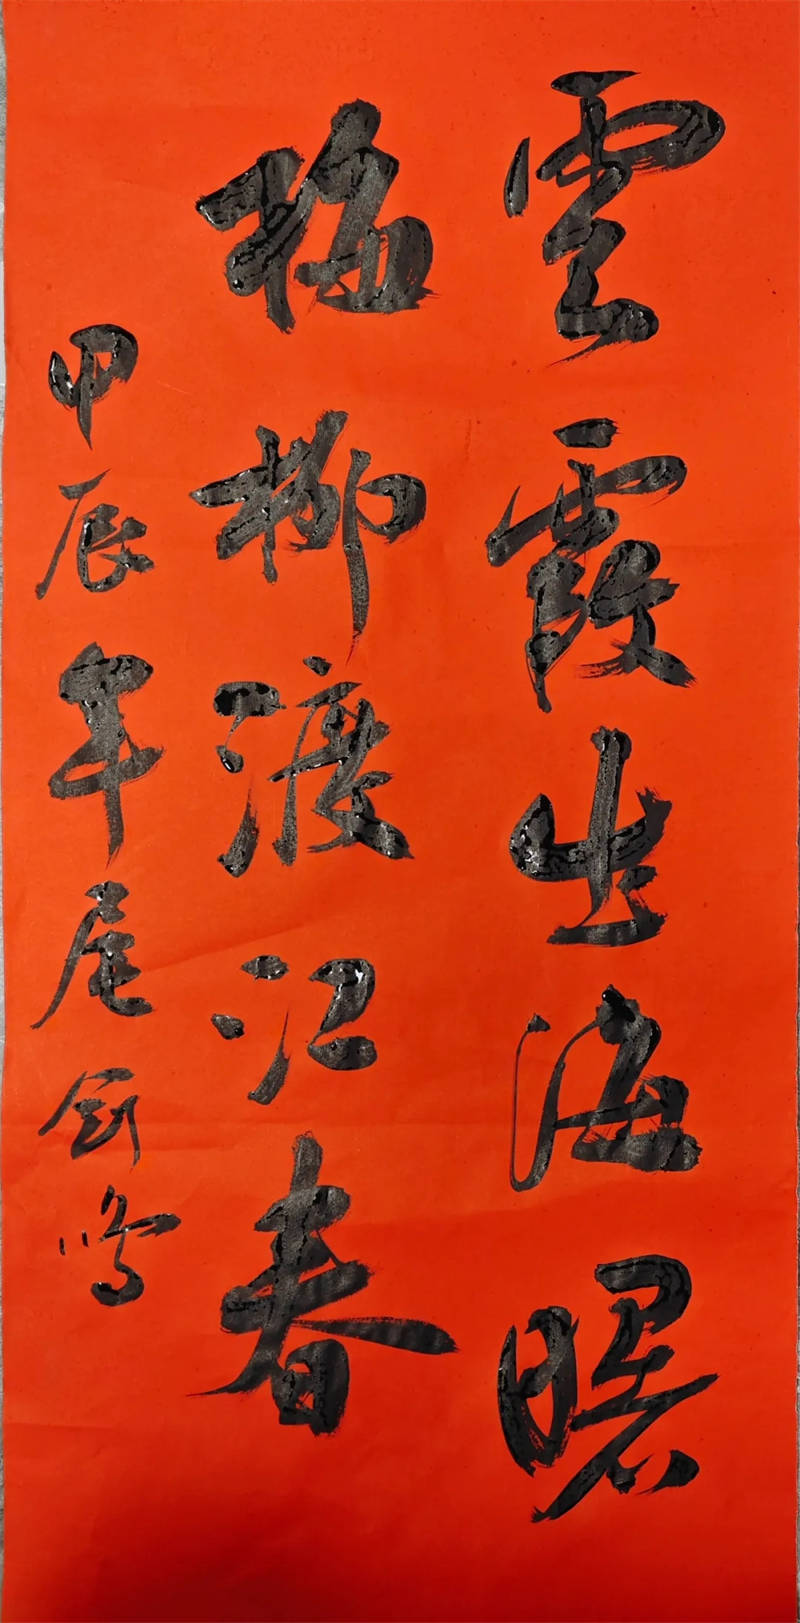 雲霞出海曙
梅柳渡江春
甲辰年尾鸣